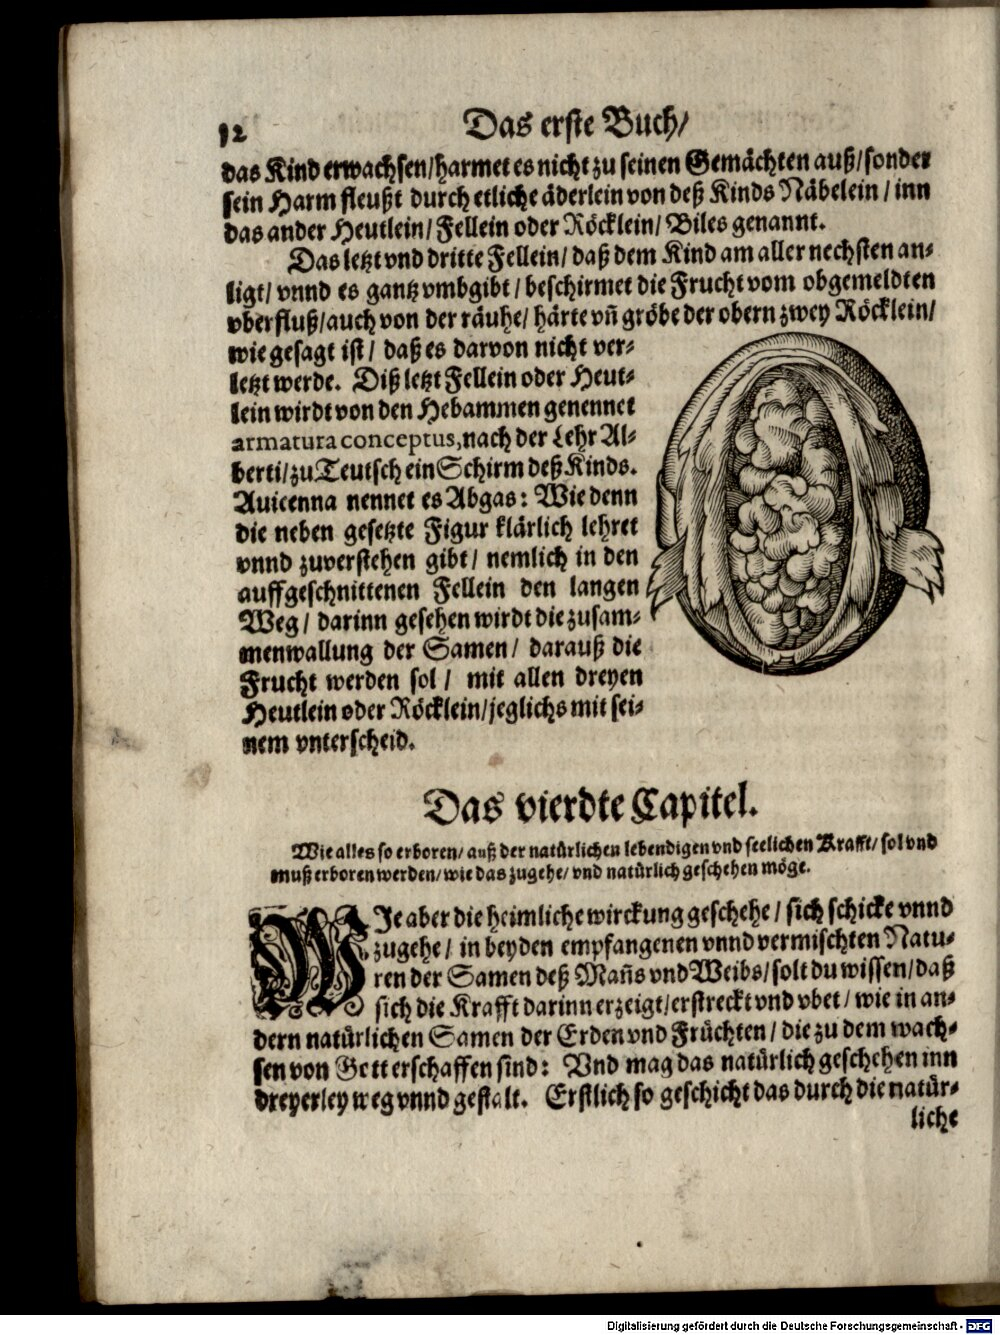 12
Das erste Buch/
das Kind erwachsen/harmet es nicht zu seinen Gemächten auß/sonder
sein Harm fleußt durch etliche äderlein von deß Kinds Näbelein/inn
das ander Heutlein/Fellein oder Röcklein/Biles genannt.
Das letzt vnd dritte Fellein/daß dem Kind am aller nechsten an⸗
ligt/vnnd es gantz vmbgibt/beschirmet die Frucht vom obgemeldten
vberfluß/auch von der räuhe/härte vñ gröbe der obern zwey Röcklein/
wie gesagt ist/daß es darvon nicht ver⸗
letzt werde. Diß letzt Fellein oder Heut⸗
lein wirdt von den Hebammen genennet
armatura conceptus, nach der Lehr Al⸗
berti/zu Teutsch ein Schirm deß Kinds.
Auicenna nennet es Abgas: Wie denn
die neben gesetzte Figur klärlich lehret
vnnd zuverstehen gibt/nemlich in den
auffgeschnittenen Fellein den langen
Weg/darinn gesehen wirdt die zusam⸗
menwallung der Samen/darauß die
Frucht werden sol/mit allen dreyen
Heutlein oder Röcklein/jeglichs mit sei⸗
nem vnterscheid.
Das vierdte Capitel.
Wie alles so erboren/auß der natürlichen lebendigen vnd seelichen Krafft/sol vnd
muß erboren werden/wie das zugehe/vnd natürlich geschehen möge.
WJe aber die heimliche wirckung geschehe/sich schicke vnnd
zugehe/in beyden empfangenen vnnd vermischten Natu⸗
ren der Samen deß Mañs vnd Weibs/solt du wissen/daß
sich die Krafft darinn erzeigt/erstreckt vnd vbet/wie in an⸗
dern natürlichen Samen der Erden vnd Früchten/die zu dem wach⸗
sen von Gott erschaffen sind: Vnd mag das natürlich geschehen inn
dreyerley weg vnnd gestalt. Erstlich so geschicht das durch die natür⸗
liche
Digitalisierung gefördert durch die Deutsche Forschungsgemeinschaft - DFG